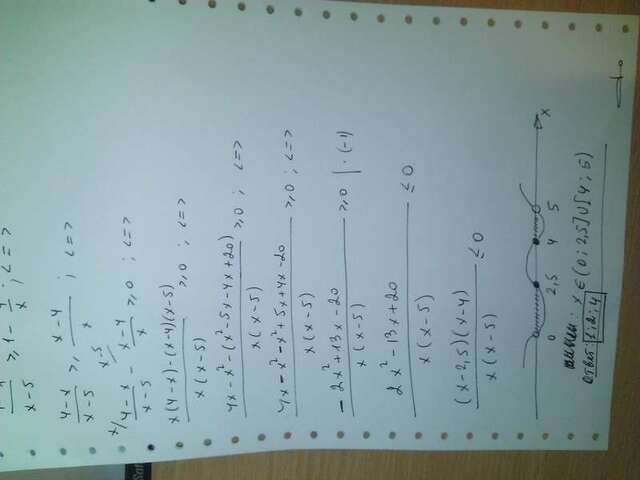 x-5 ≥ 1 - x ; <=>
4-x / x-5 ≥ x-4 / x ; <=>
x/ 4-x / x-5 - x-5/ x-4 / x ≥ 0 ; <=>
x(4-x)-(x-4)(x-5) / x(x-5) ≥ 0 ; <=>
4x-x²-(x²-5x-4x+20) / x(x-5) ≥ 0 ; <=>
4x-x²-x²+5x+4x-20 / x(x-5) ≥ 0 ; <=>
-2x²+13x-20 / x(x-5) ≥ 0 | ·(-1)
2x²-13x+20 / x(x-5) ≤ 0
(x-2,5)(x-4) / x(x-5) ≤ 0
0 2,5 4 5 x
x ∈ (0; 2,5] U [4; 5)
Ответ: 1; 2; 4